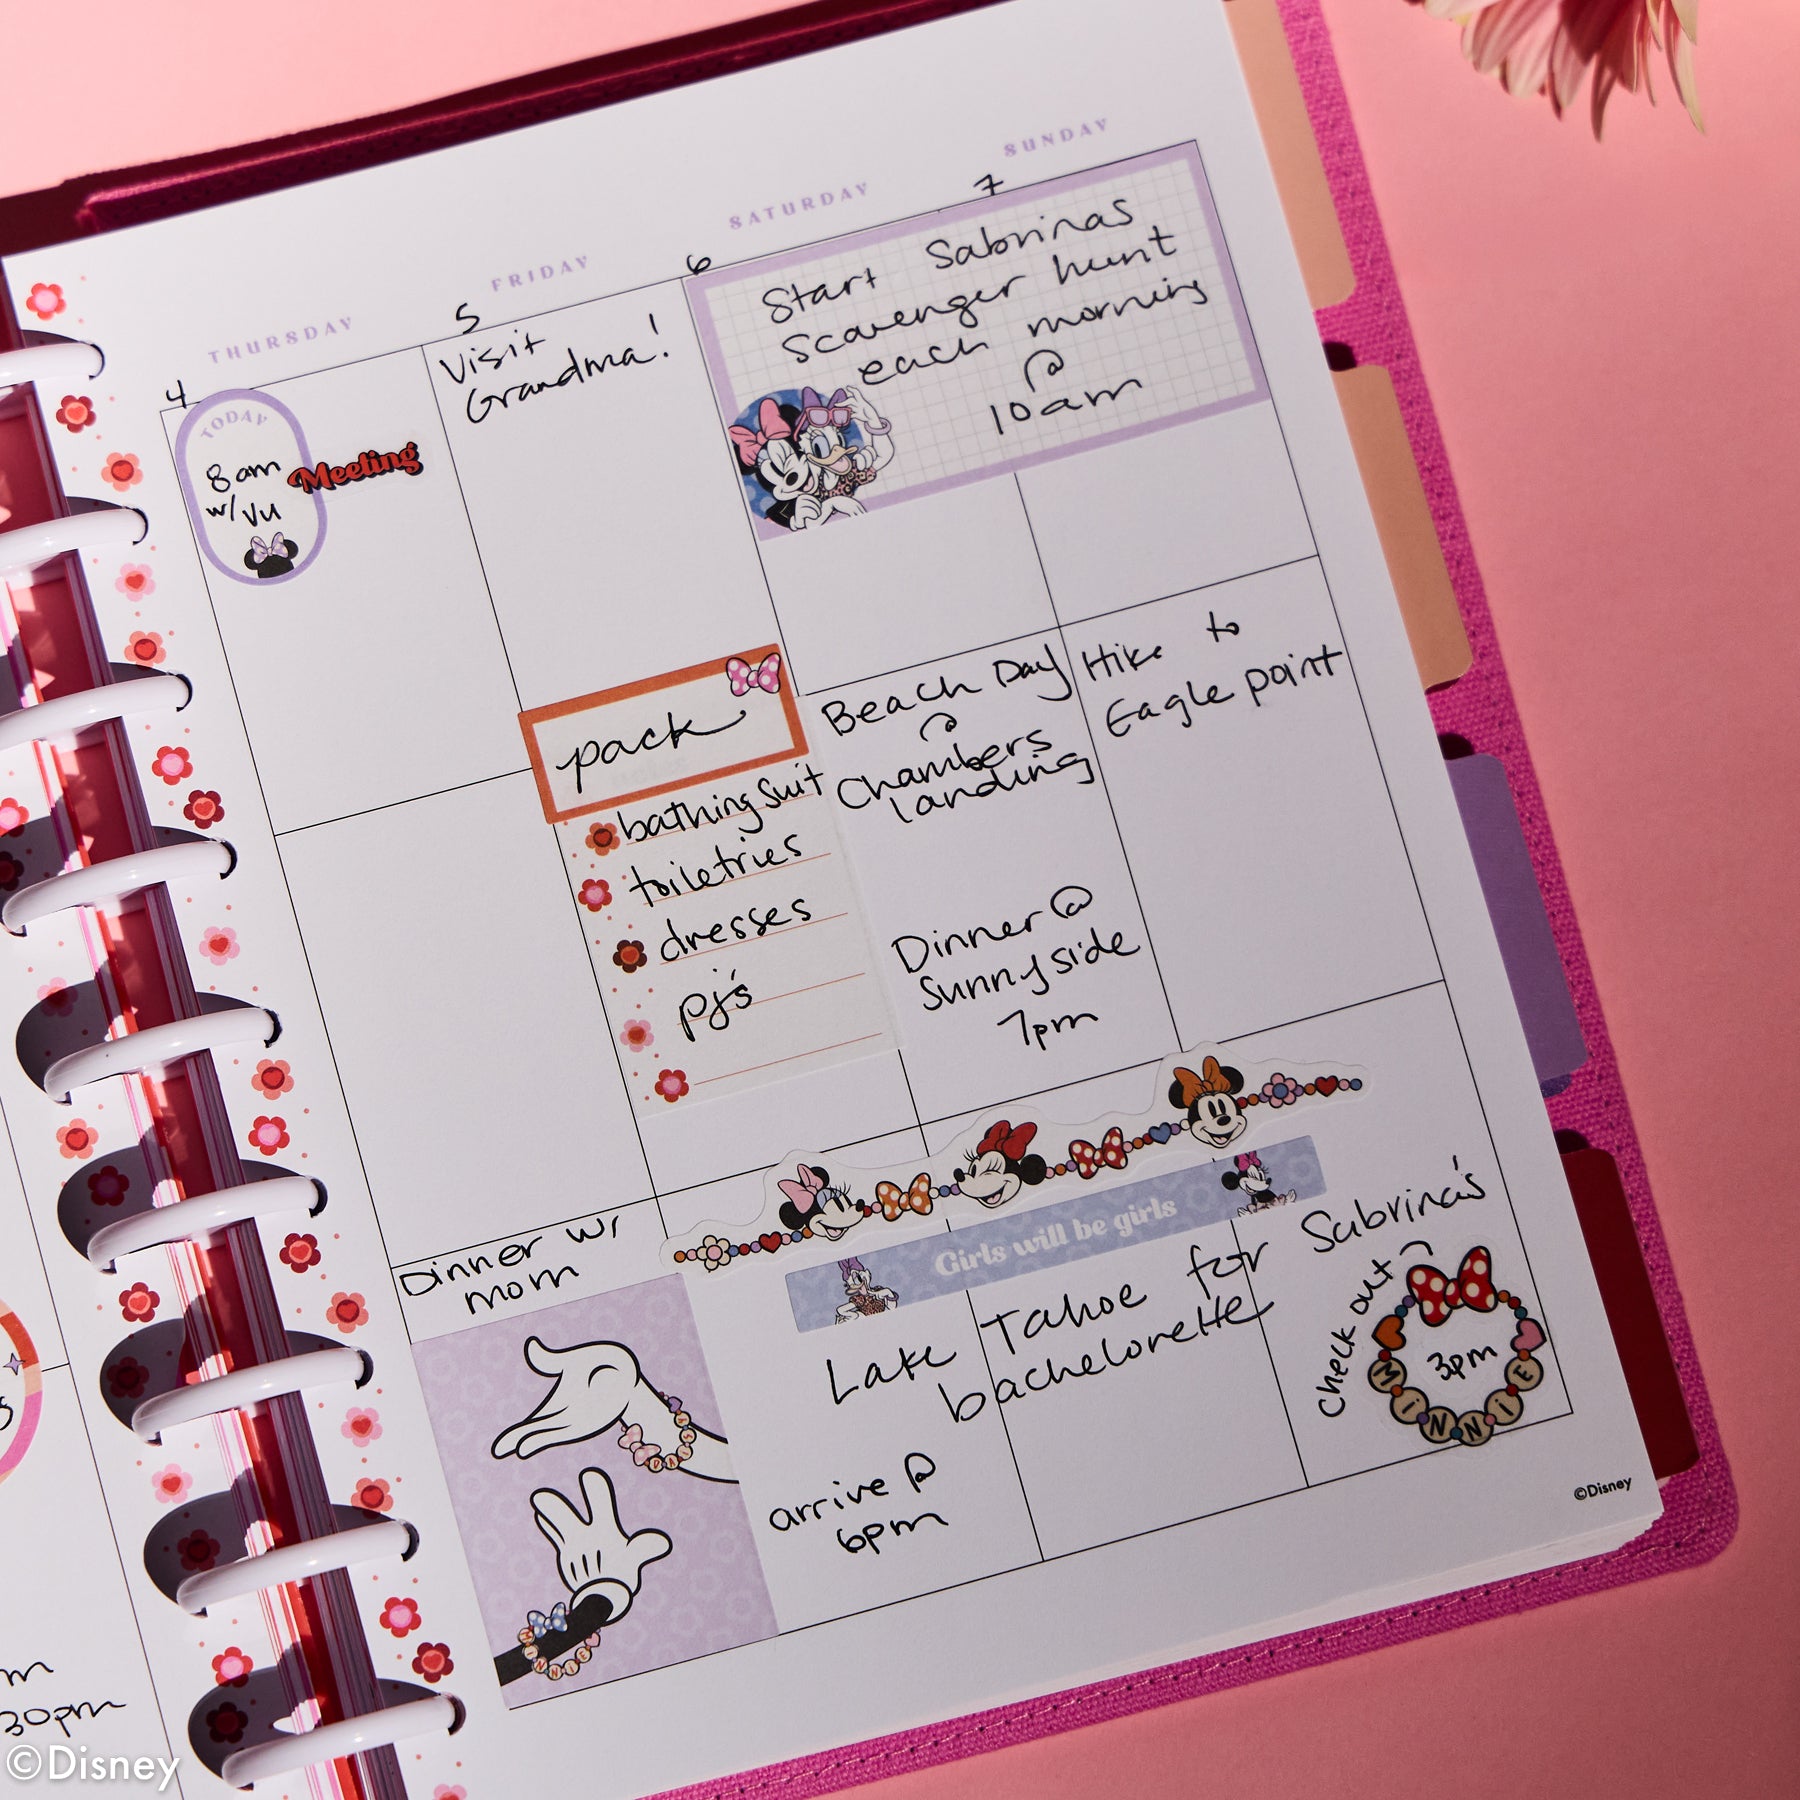 THURSDAY
FRIDAY
SATURDAY
SUNDAY
4
5
6
7
TODAY
8am
w/ Vu
Meeting
Visit
Grandma!
Start Sabrinas
Scavenger hunt
each morning
@
10am
pack
bathing suit
toiletries
dresses
pj's
Beach Day
@
Chambers
landing
Dinner @
Sunnyside
7pm
Hike to
Eagle point
Dinner w/
mom
DAISY
MINNIE
Girls will be girls
Lake Tahoe for Sabrina's
bachelorette
arrive @
6pm
check out @
3pm
MINNIE
©Disney
30pm
©Disney